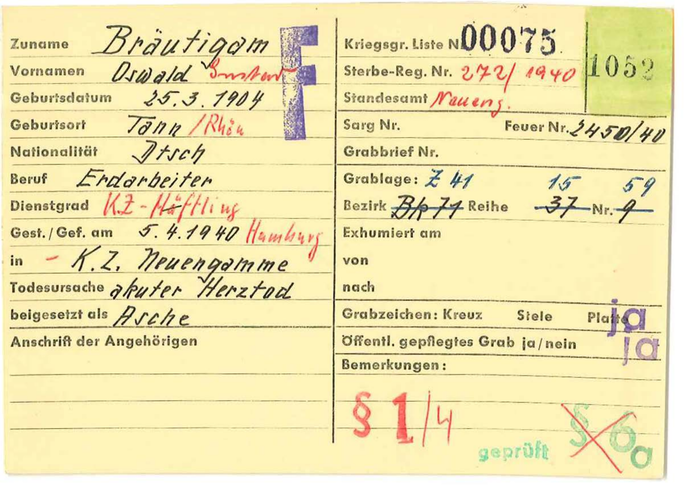 Zuname Bräutigam
Vornamen Oswald Gustav
Geburtsdatum 25.3.1904
Geburtsort Tann /Rhön
Nationalität Dtsch
Beruf Erdarbeiter
Dienstgrad K.Z-Häftling
Gest./Gef. am 5.4.1940 Hamburg
in - K.Z. Neuengamme
Todesursache akuter Herztod
beigesetzt als Asche
Anschrift der Angehörigen
F
Kriegsgr. Liste N 00075
1052
Sterbe-Reg. Nr. 272/1940
Standesamt Neueng.
Sarg Nr. Feuer Nr. 2450/40
Grabbrief Nr.
Grablage: Z 41 15 59
Bezirk Bk 71 Reihe 37 Nr. 9
Exhumiert am
von
nach
Grabzeichen: Kreuz Stele Platte ja
Öffentl. gepflegtes Grab ja/nein ja
Bemerkungen:
§ 1/4
geprüft § 6a